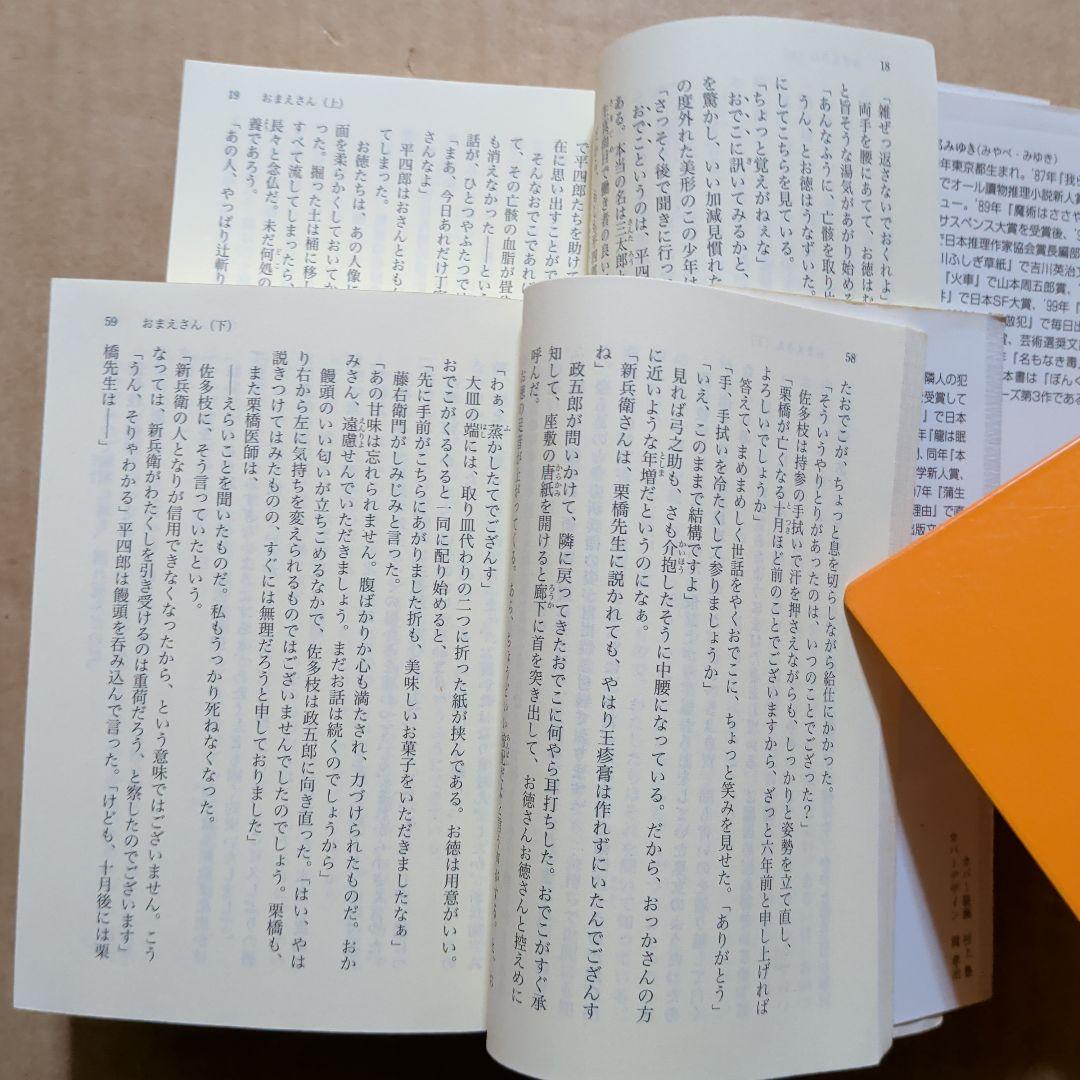 18
「雑ぜっ返さないでおくれよ」
両手を腰にあてて、お徳はむ
と旨そうな湯気があがり始める
「あんなふうに、亡骸を取り片
うん、とお徳はうなずいた。
にしてこちらを見ている。
「ちょっと覚えがねぇな」
おでこに訊いてみるかと、
を驚かし、いい加減見慣れた
の度外れた美形のこの少年は
「さっそく後で聞きに行っ
おでこというのは、平四
ある。本当の名は三太郎と
19 おまえさん（上）
で平四郎たちを助けて
在に思い出すことがで
そんなおでこであれば
て、その亡骸の血脂が畳
も消えなかった――という
話が、ひとつやふたつで
「まあ、今日あれだけ丁寧
さんなよ」
平四郎はおさんとおもん
てしまった。
お徳たちは、あの人像に
面を柔らかくしておいてか
った。掘った土は桶に移し
すべて流してしまったら、
長々と念仏だ。未だ何処の
養であろう。
「あの人、やっぱり辻斬り
58
たおでこが、ちょっと息を切らしながら給仕にかかった。
「そういうやりとりがあったのは、いつのことでござった？」
佐多枝は持参の手拭いで汗を押さえながらも、しっかりと姿勢を立て直し、
「栗橋が亡くなる十月ほど前のことでございますから、ざっと六年前と申し上げれば
よろしいでしょうか」
答えて、まめまめしく世話をやくおでこに、ちょっと笑みを見せた。「ありがとう」
「手、手拭いを冷たくして参りましょうか」
「いえ、このままで結構ですよ」
見れば弓之助も、さも介抱したそうに中腰になっている。だから、おっかさんの方
に近いような年増だというのになぁ。
「新兵衛さんは、栗橋先生に説かれても、やはり王疹膏は作れずにいたんでござんす
ね」
政五郎が問いかけて、隣に戻ってきたおでこに何やら耳打ちした。おでこがすぐ承
知して、座敷の唐紙を開けると廊下に首を突き出して、お徳さんお徳さんと控えめに
呼んだ。
59 おまえさん（下）
「わぁ、蒸かしたてでござんす」
大皿の端には、取り皿代わりの二つに折った紙が挟んである。お徳は用意がいい。
おでこがくるくると一同に配り始めると、
「先に手前がこちらにあがりました折も、美味しいお菓子をいただきましたなぁ」
藤右衛門がしみじみと言った。
「あの甘味は忘れられません。腹ばかりか心も満たされ、力づけられたものだ。おか
みさん、遠慮せんでいただきましょう。まだお話は続くのでしょうから」
饅頭のいい匂いが立ちこめるなかで、佐多枝は政五郎に向き直った。「はい、やは
り右から左に気持ちを変えられるものではございませんでしたのでしょう。栗橋も、
説きつけてはみたものの、すぐには無理だろうと申しておりました」
また栗橋医師は、
――えらいことを聞いたものだ。私もうっかり死ねなくなった。
佐多枝に、そう言っていたという。
「新兵衛の人となりが信用できなくなったから、という意味ではございません。こう
なっては、新兵衛がわたくしを引き受けるのは重荷だろう、と察したのでございます」
「うん、そりゃわかる」平四郎は饅頭を呑み込んで言った。「けども、十月後には栗
橋先生は――」
みゆき（みやべ・みゆき）
年東京都生まれ。'87年『我ら
でオール讀物推理小説新人賞
ュー。'89年『魔術はささや
サスペンス大賞を受賞後、'9
日本推理作家協会賞長編部
川ふしぎ草紙』で吉川英治文
『火車』で山本周五郎賞、
』で日本SF大賞、'99年『
犯』で毎日出
、芸術選奨文部
年『名もなき毒』
本書は『ぼんく
ーズ第3作である
隣人の犯
を受賞して
』で日本
年『龍は眠
』、同年『本
学新人賞、
97年『蒲生
理由』で直
カバー装画 村上 豊
カバーデザイン